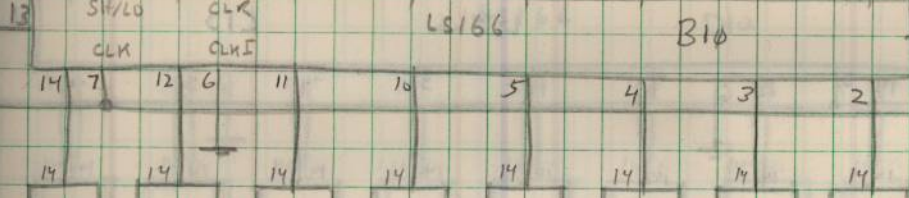 13 SH/LD CLR LS166 B10
CLK CLKI
14 7 12 6 11 10 5 4 3 2
14 14 14 14 14 14 14 14